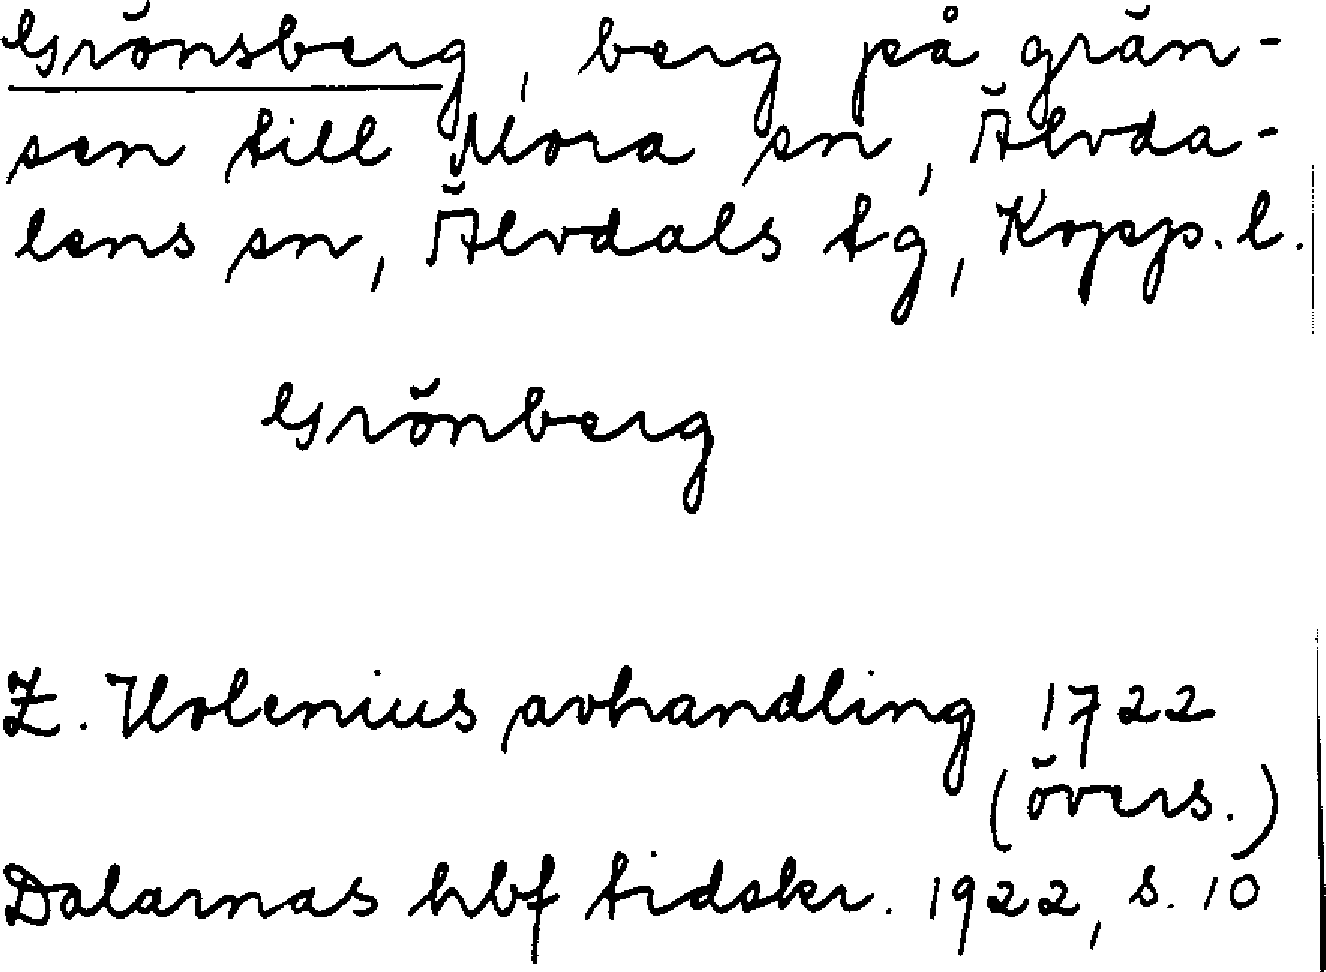 Grönsberg, berg på grän-
sen till Mora sn, Älvda-
lens sn, Älvdals tg, Kopp. l.
Grönberg
Z. Holenius avhandling 1722
(övers.)
Dalarnas hbf tidskr. 1922, s. 10